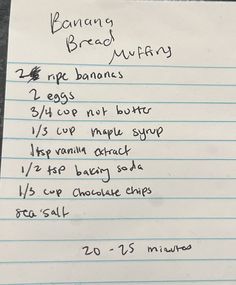 Banana
Bread
Muffins
2 ripe bananas
2 eggs
3/4 cup nut butter
1/3 cup maple syrup
1tsp vanilla extract
1/2 tsp baking soda
1/3 cup chocolate chips
sea salt
20 - 25 minutes